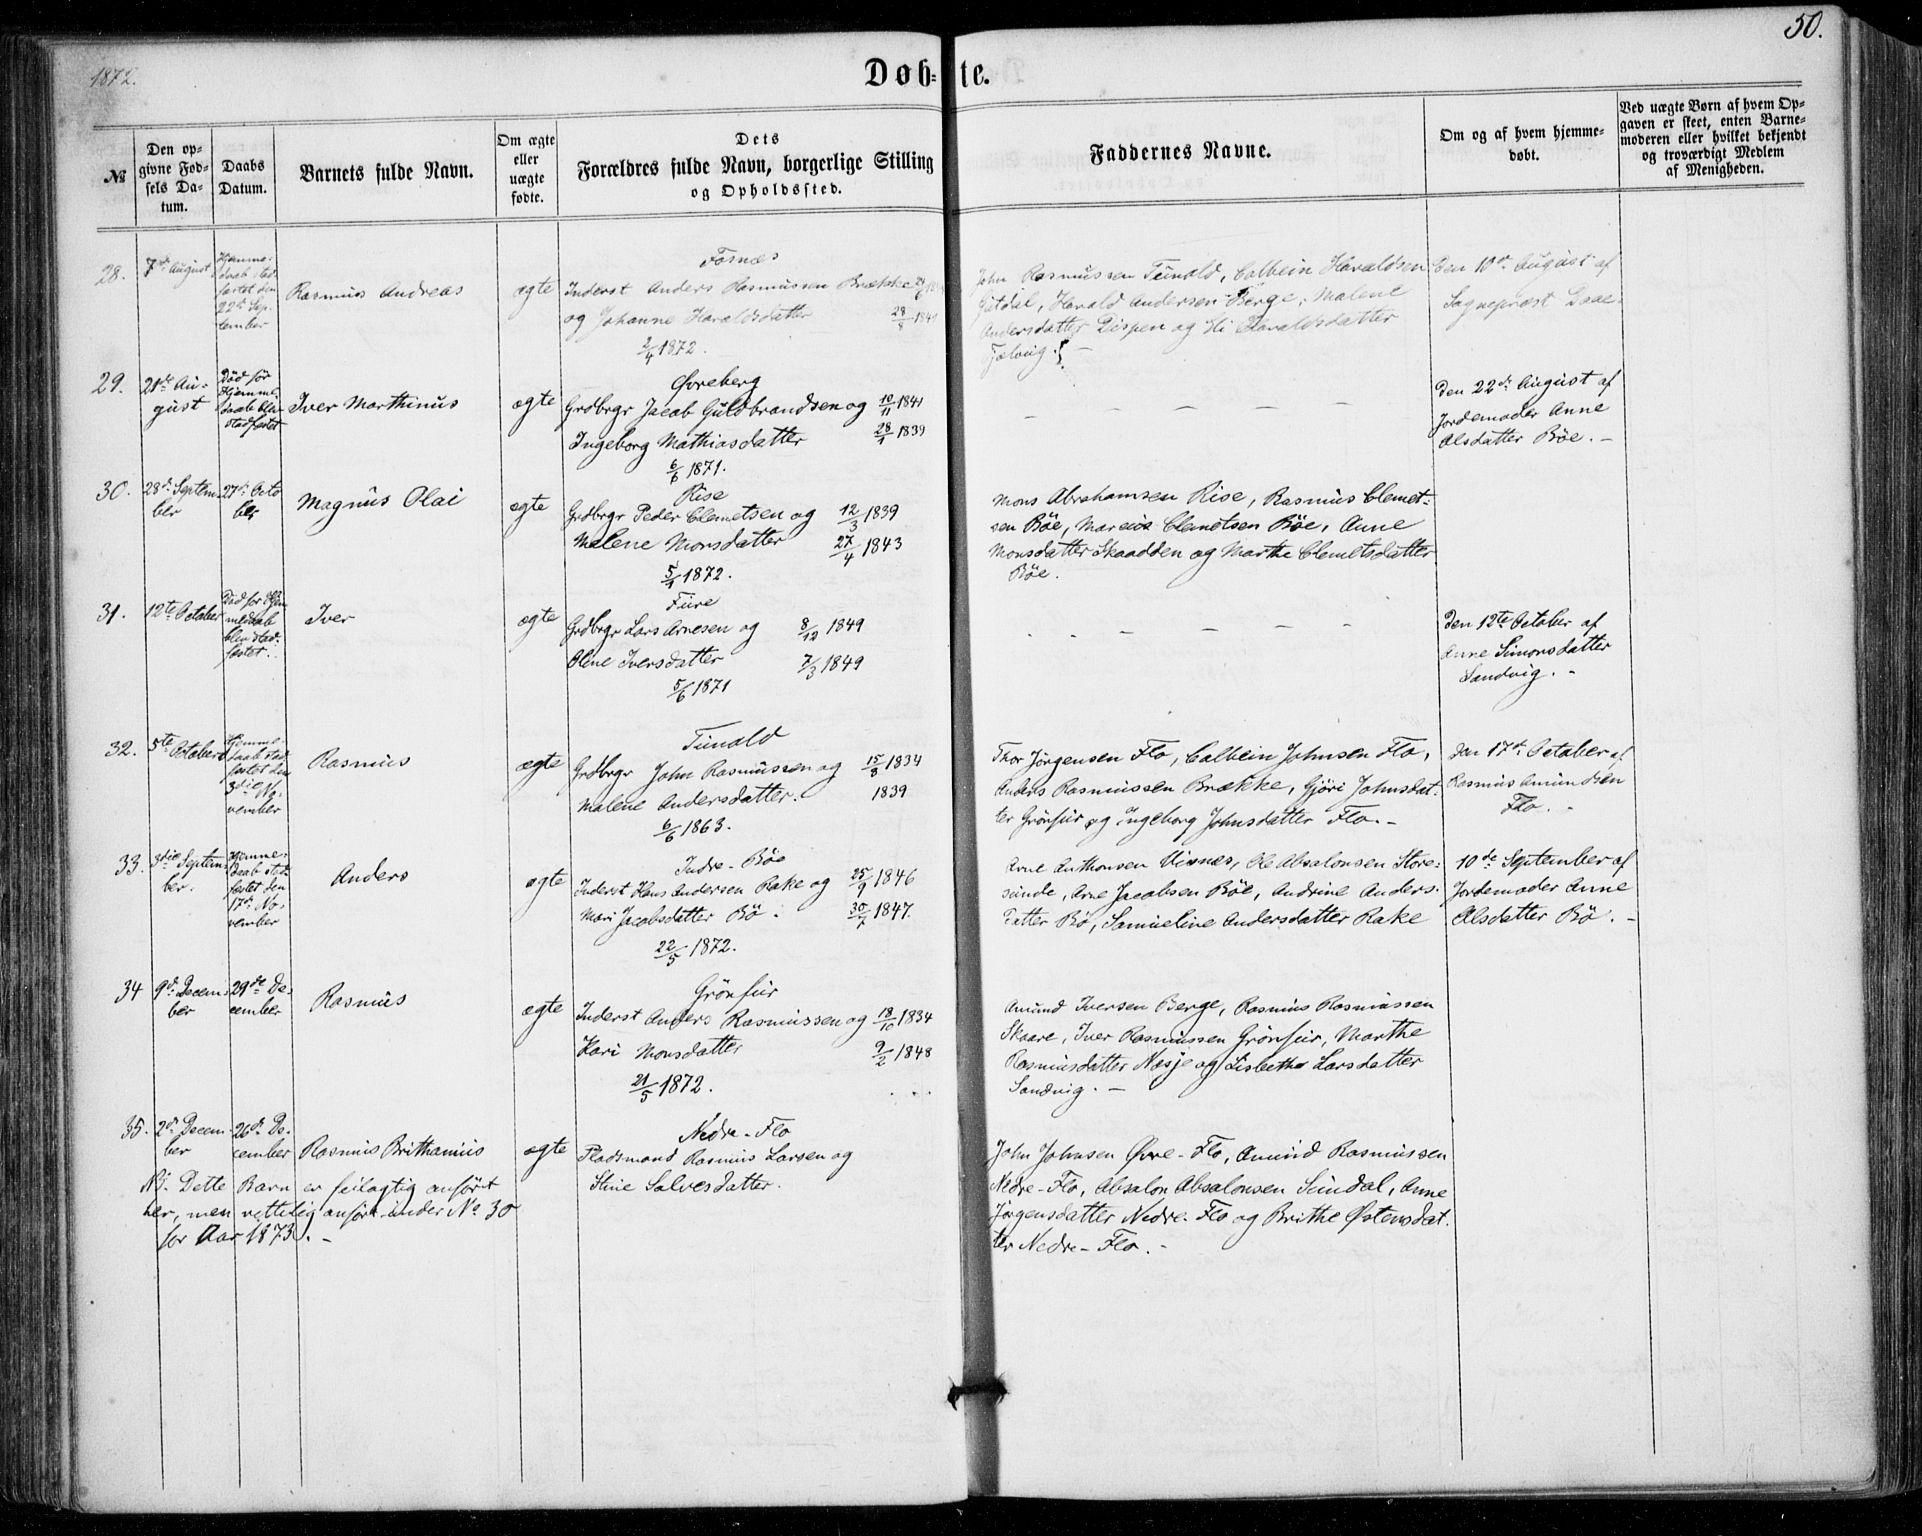 1872.
Døb-te.
50.
№
Den op-
givne Fød-
sels Da-
tum.
Daabs
Datum.
Barnets fulde Navn.
Om ægte
eller
uægte
fødte.
Dets
Forældres fulde Navn, borgerlige Stilling
og Opholdssted.
Faddernes Navne.
Om og af hvem hjemme-
døbt.
Ved uægte Børn af hvem Op-
gaven er skeet, enten Barne-
moderen eller hvilket bekjendt
og troværdigt Medlem
af Menigheden.
28.
7de August
Hjemme-
daab stad-
fæstet den
22de Sep-
tember
Rasmus Andreas
ægte
Fosnæs
Inderst Anders Rasmussen Brække
og Johanne Haraldsdatter 28/8 1841
2/4 1872.
John Rasmussen Tunold, Colbein Haraldsen
Harald Andersen Berge, Malene
Andersdatter Dispen og Haraldsdatter
Den 10de August af
Sognepræst
29.
21de Au-
gust
Død før
Hjemme-
daab blev
stadfæstet
Iver Marthinus
ægte
Øvreberg
Grdbrgr Jacob Guldbrandsen og 10/11 1841
Ingeborg Mathiasdatter 28/1 1839
6/6 1871.
- - - - - -
Den 22de August af
Jordemoder Anne
Olsdatter Böe. -
30.
28de Septem-
ber
27de Octo
ber
Magnus Olai
ægte
Rise
Grdbrgr Peder Clemetsen og 12/3 1839
Malene Monsdatter 27/4 1843
5/1 1872.
Mons Abrahamsen Rise, Rasmus Clemet-
sen Böe, Marcus Clemetsen Böe, Anne
Monsdatter Skaadden og Marthe Clemetsdatter
Böe.
31.
12te October
Død før Hjem
medaab
blev stad-
fæstet.
Iver
ægte
Fure
Grdbrgr Lars Arnesen og 8/12 1849
Oline Iversdatter 7/3 1849
5/6 1871
- - - - - -
Den 12te October af
Anne Simonsdatter
Sandvig. -
32.
5te October
Hjemme-
daab stad
fæstet den
3die No-
vember
Rasmus
ægte
Tunold
Grdbrgr John Rasmussen og 15/8 1834
Malene Andersdatter. 1839
6/6 1863.
Thor Jörgensen Flo, Colbein Johnsen Flo,
Anders Rasmussen Brække, Gjöri Johnsdat-
ter Grönfur og Ingeborg Johnsdatter Flo. -
Den 17de October af
Rasmus Amundsen
Flo. -
33.
3die Septem-
ber.
Hjemme-
daab stad-
fæstet den
17de No-
vember
Anders
ægte
Indre-Böe
Inderst Hans Andersen Rake og 25/9 1846
Mari Jacobsdatter Bö. 30/7 1847.
22/5 1872.
Arne Anthonsen Viknæs, Ole Absalonsen Store-
sunde, Arne Jacobsen Böe, Andrine Anders-
datter Bö, Samueline Andersdatter Rake
10de September af
Jordemoder Anne
Olsdatter Bö. -
34
9de Decem-
ber
29de De-
cember
Rasmus
ægte
Grönfur
Inderst Anders Rasmussen og 18/10 1834
Kari Monsdatter 9/2 1848
21/5 1872.
Amund Iversen Berge, Rasmus Rasmussen
Skaare, Iver Rasmussen Grönfur, Marthe
Rasmusdatter Nesje og Lisbethe Larsdatter
Sandvig. -
35.
2de Decem-
ber
26de De-
cember
Rasmus Brithanius
ægte
Nedre-Flo
Pladsmand Rasmus Larsen og
Stine Salvesdatter.
John Johnsen Øvre-Flo, Amund Rasmussen
Nedre-Flo, Absalon Absalonsen Sundal, Anne
Jörgensdatter Nedre-Flo og Brithe Østensdat-
ter Nedre-Flo. -
NB. Dette Barn er feilagtig anfört
her, men rettelig anfört under No 30
for Aar 1873. -